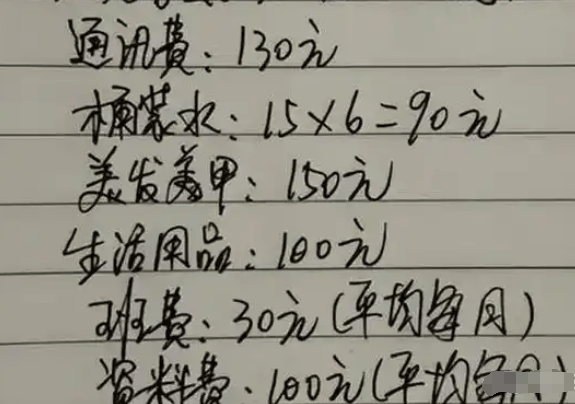 通讯费：130元
桶装水：15×6=90元
美发美甲：150元
生活用品：100元
班费：30元(平均每月)
资料费：100元(平均每月)